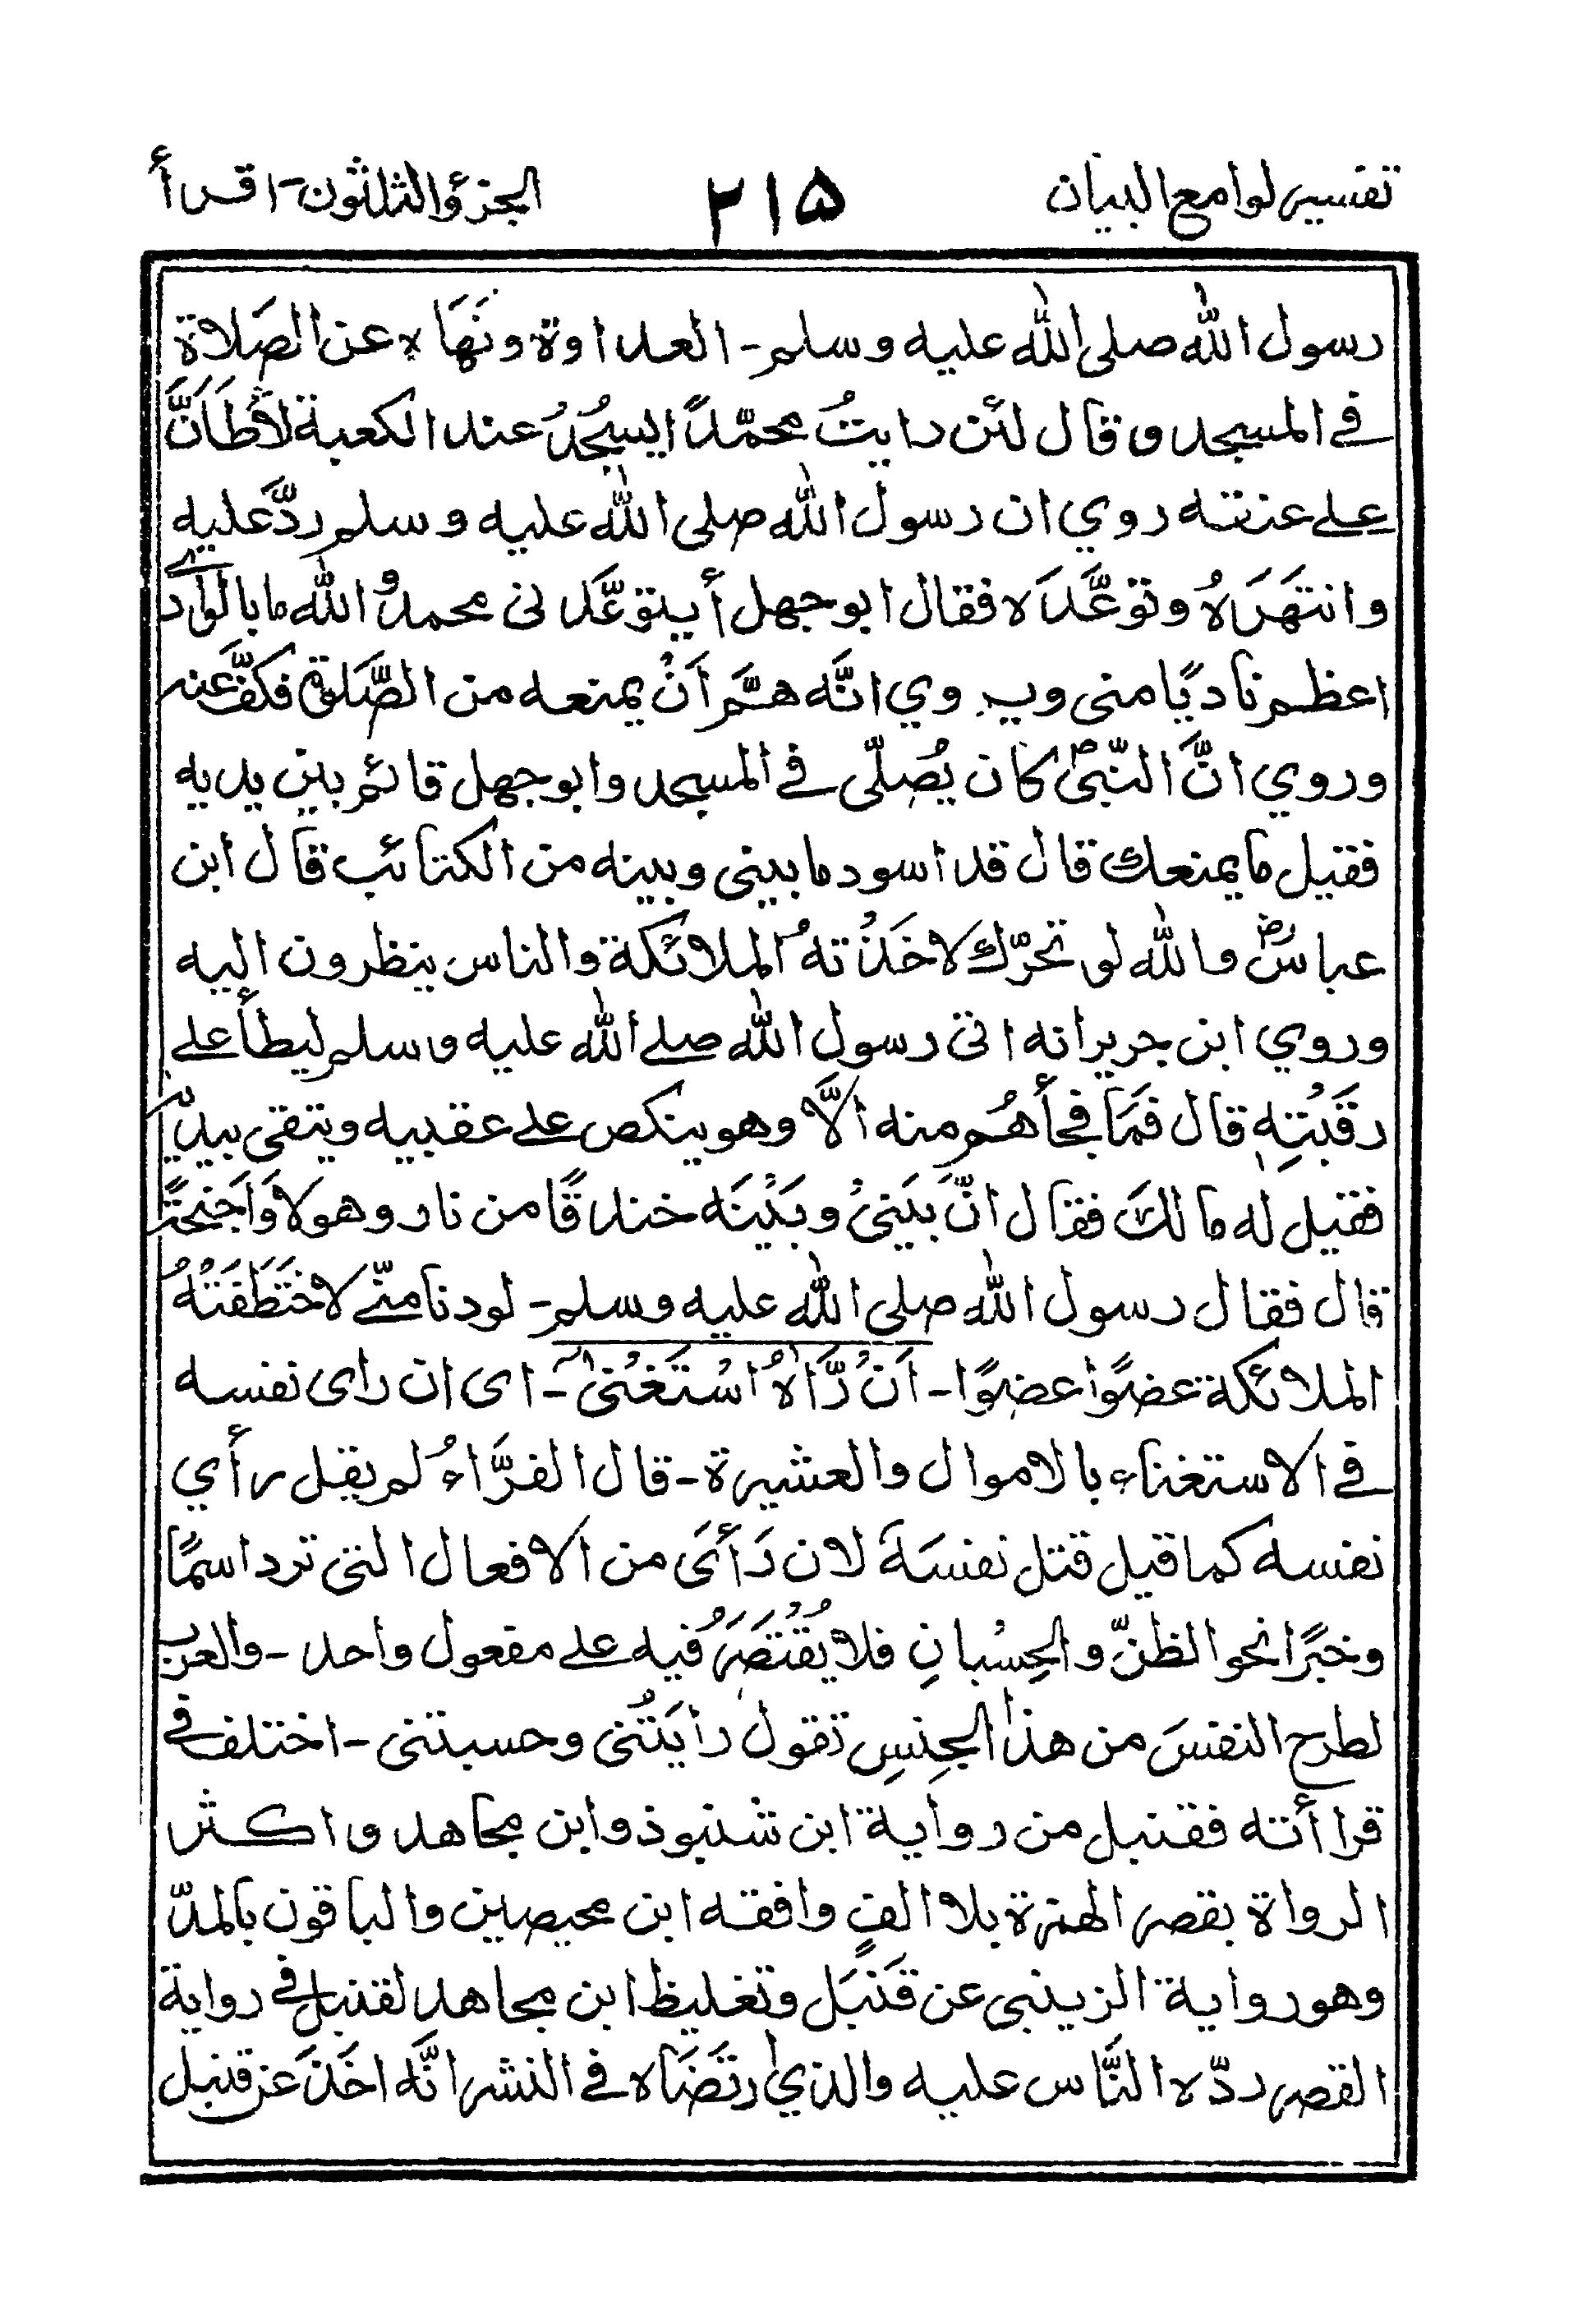 تفسير لوامع البيان ۲۱۵ الجزؤ الثلاثون - اقرأ
رسول الله صلى الله عليه وسلم - العداوة ونَهَاه عن الصَلاة
في المسجد وقال لئن رايتُ محمّدًا يسجُدُ عند الكعبة لأَطَأَنَّ
على عنقه روي ان رسول الله صلى الله عليه وسلم ردَّ عليه
وانتهَرَهُ وتوعَّدَه فقال ابو جهل أيتوعَّدنى محمدٌ والله ما بالوادى
اعظم ناديًا منى ويروي انَّه همَّ أنْ يمنعه من الصَّلوة فكفَّ عنه
وروي انَّ النّبىّ كان يُصلّى في المسجد وابو جهل قائم بين يديه
فقيل ما يمنعك قال قد اسود ما بينى وبينه من الكتائب قال ابن
عباسؓ والله لو تحرّك لاخَذَتهُ الملائكة والناس ينظرون اليه
وروي ابن جرير انه اتى رسول الله صلى الله عليه وسلم ليطأ على
رقَبُتِهٖ قال فمَا فجأهُم منه الَّا وهو ينكص على عقبيه ويتقى بيديه
فقيل له ما لكَ فقال انّ بَينىْ وبَيْنَه خندقًا من نار وهولا وَاَجنِحَةً
قال فقال رسول الله صلى الله عليه وسلم - لو دنا منّى لاخْتَطَفَتْهُ
الملائكة عضوًا عضوًا - اَنْ رَّاٰهُ اسْتَغْنىٰ - اى ان راى نفسه
في الاستغناء بالاموال والعشيرة - قال الفرَّاءُ لم يقل رأي
نفسه كما قيل قتل نفسَهَ لان رَأىَ من الافعال التى ترد اسمًا
وخبرًا نحو الظنّ والحِسْبانِ فلا يُقْتَصَرُ فيه على مفعول واحد - والعرب
لطرح النفسَ من هذا الجِنسِ تقول رايتُنى وحسبتنى - اختلف في
قراأته فقنبل من رواية ابن شنبوذ وابن مجاهد واكثر
الرواة بقصر الهمزة بلا الفٍ وافقه ابن محيصين والباقون بالمدّ
وهو رواية الزينبى عن قَنبَل وتغليظ ابن مجاهد لقنبل في رواية
القصر ردّه النَّاس عليه والذي ارتضَاه في النشر انَّه اخَذَ عن قنبل